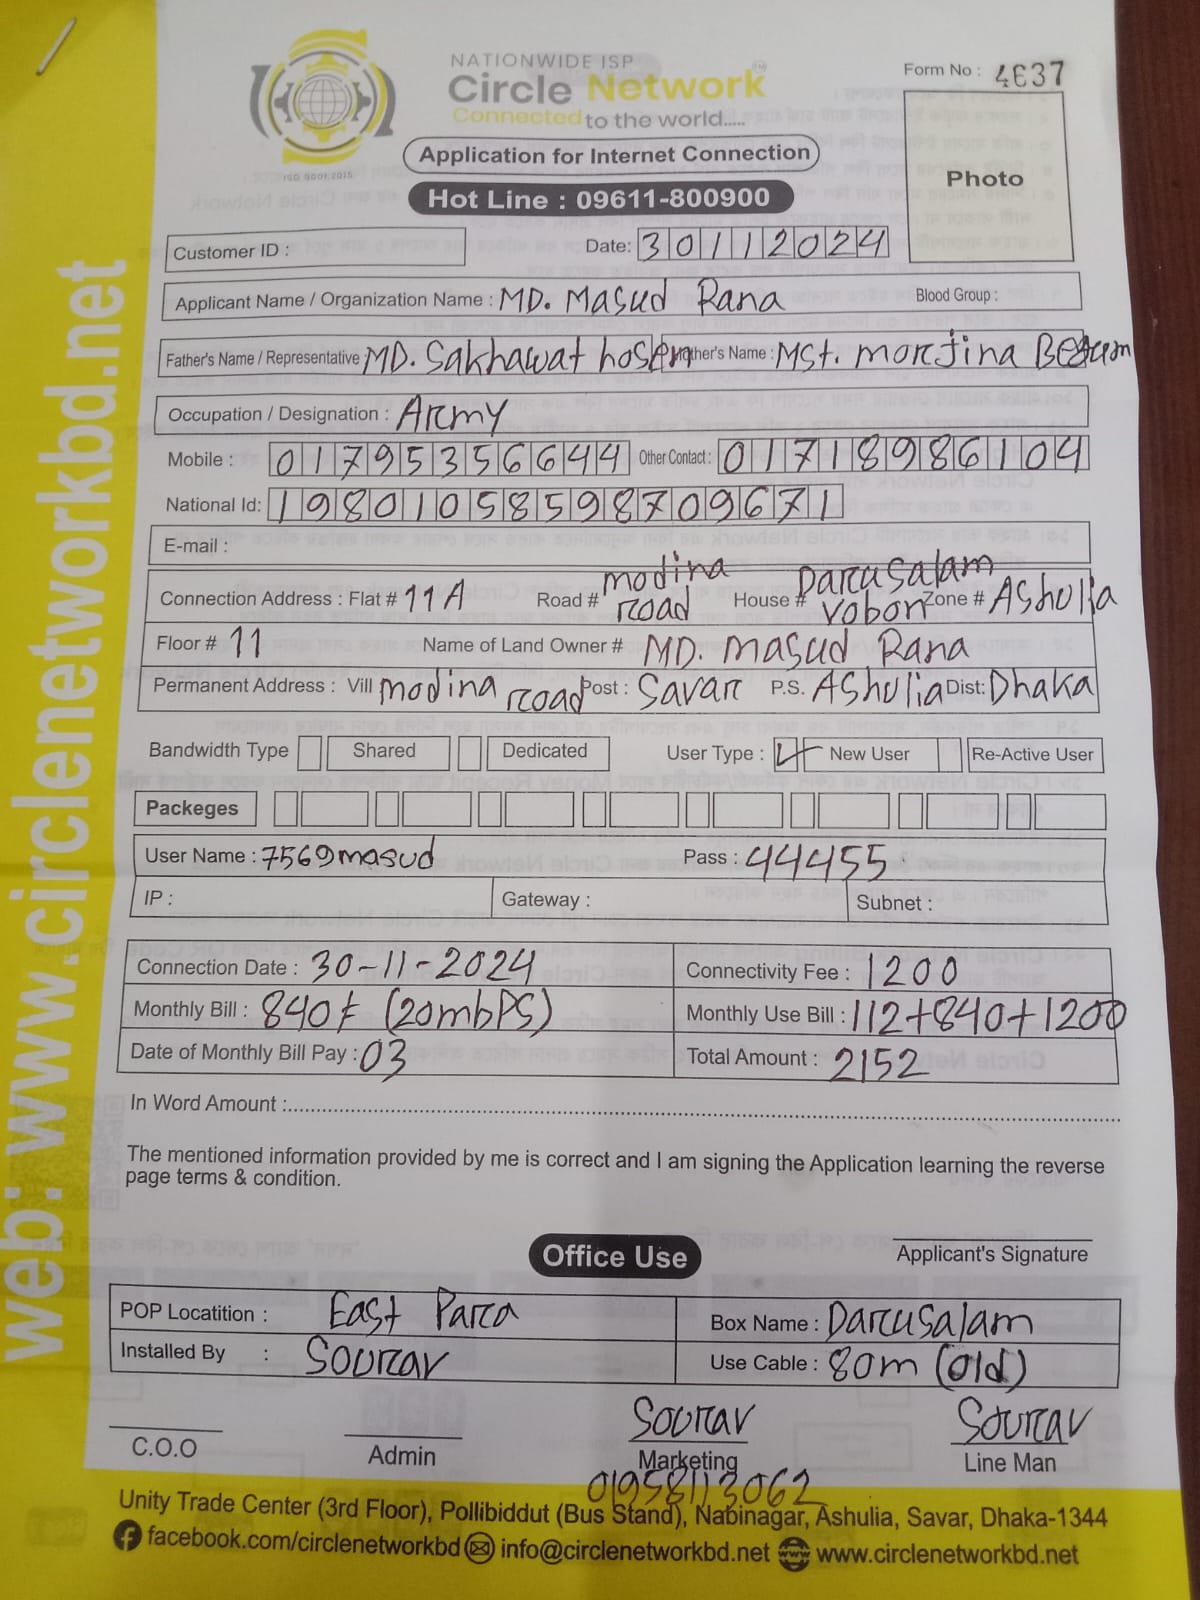 NATIONWIDE ISP
Circle Network
Connected to the world.....
ISO 9001:2015
Form No : 4637
Application for Internet Connection
Hot Line : 09611-800900
Photo
Customer ID :
Date: 30112024
Applicant Name / Organization Name : MD. Masud Rana Blood Group :
Father's Name / Representative MD. Sakhawat hosen Mother's Name : MSt. Morjina Begum
Occupation / Designation : Army
Mobile : 01795356644 Other Contact : 01718986104
National Id: 19801058598709671
E-mail :
Connection Address : Flat # 11A Road # modina road House # Darusalam vobon Zone # Ashulia
Floor # 11 Name of Land Owner # MD. Masud Rana
Permanent Address : Vill modina road Post : Savar P.S. Ashulia Dist: Dhaka
Bandwidth Type Shared Dedicated User Type : New User Re-Active User
Packeges
User Name : 7569masud Pass : 44455
IP : Gateway : Subnet :
Connection Date : 30-11-2024 Connectivity Fee : 1200
Monthly Bill : 840৳ (20mbps) Monthly Use Bill : 112+840+1200
Date of Monthly Bill Pay : 03 Total Amount : 2152
In Word Amount :
The mentioned information provided by me is correct and I am signing the Application learning the reverse
page terms & condition.
Applicant's Signature
Office Use
POP Locatition : East Para Box Name : Darusalam
Installed By : Sourav Use Cable : 80m (old)
Sourav Sourav
C.O.O Admin Marketing Line Man
01958113062
Unity Trade Center (3rd Floor), Pollibiddut (Bus Stand), Nabinagar, Ashulia, Savar, Dhaka-1344
facebook.com/circlenetworkbd info@circlenetworkbd.net www.circlenetworkbd.net
web: www.circlenetworkbd.net